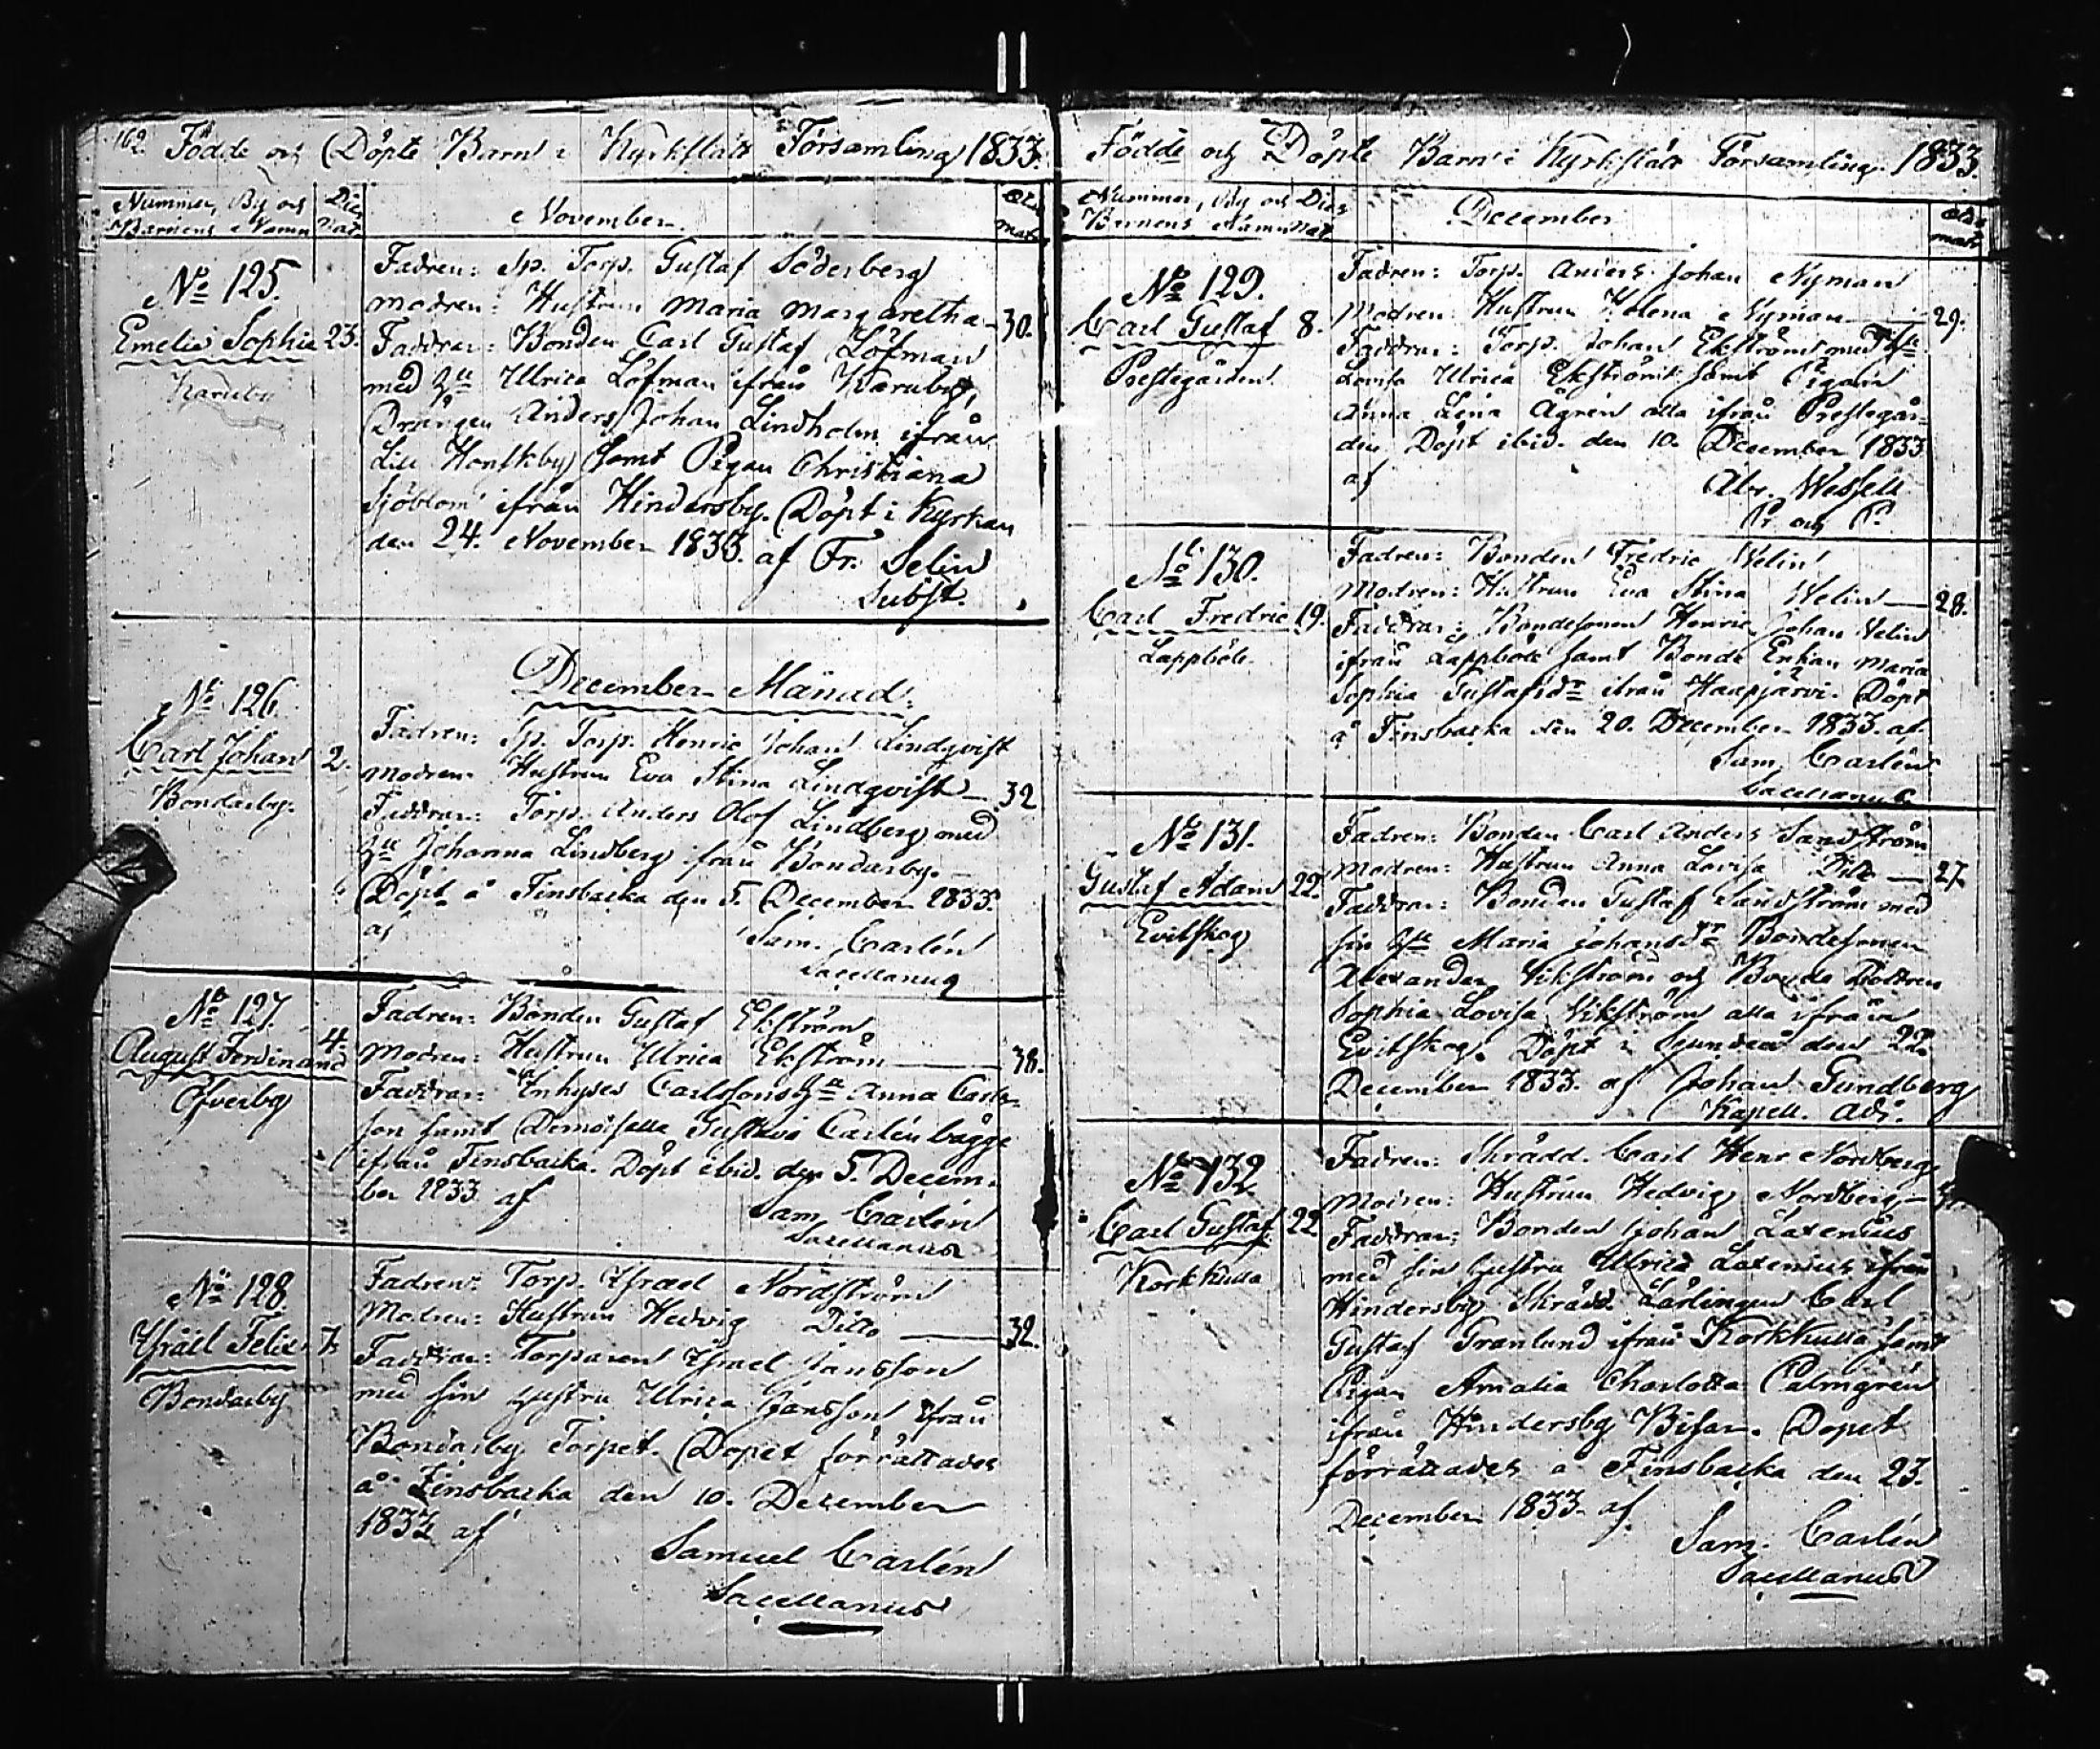 162. Födde och Döpte Barn i Kyrkslätt Församling 1833.
Nummer, By och Barnens Namn
Dies Nat.
November.
Ætas matr.
No 125.
Emelie Sophia 23.
Karuby
Fadren: Sp. Torp. Gustaf Söderberg
Modren: Hustrun Maria Margaretha 30.
Faddrar: Bonden Carl Gustaf Löfman
med Hu Ulrica Löfman ifrån Karuby,
Drängen Anders Johan Lindholm ifrån
Lill Honskby samt Pigan Christiana
Sjöblom ifrån Hindersby. Döpt i Kyrkan
den 24. November 1833. af Fr. Selin
Subst.
December Månad.
No 126.
Carl Johan 2.
Bondarby.
Fadren: Sp. Torp. Henric Johan Lindqvist
Modren: Hustrun Eva Stina Lindqvist — 32
Faddrar: Torp. Anders Olof Lindberg med
Hu Johanna Lindberg ifrån Bondarby.
Döpt å Finsbacka den 5. December 1833.
af Sam. Carlén
Sacellanus
No 127.
4.
August Ferdinand
Öfverby
Fadren: Bonden Gustaf Ekström
Modren: Hustrun Ulrica Ekström — 38.
Faddrar: Inhyses Carlssons Hu Anna Carls-
son samt Demoiselle Gustava Carlén bägge
ifrån Finsbacka. Döpt ibid. den 5. Decem-
ber 1833 af
Sam Carlén
Sacellanus
No 128.
Israel Felix 7.
Bondarby
Fadren: Torp. Israel Nordström
Modren: Hustrun Hedvig Ditto — 32.
Faddrar: Torparen Israel Jansson
med sin Hustru Ulrica Jansson ifrån
Bondarby Torpet. Döpet förrättades
å Finsbacka den 10. December
1833 af
Samuel Carlén
Sacellanus
Födde och Döpte Barn i Kyrkslätt Församling. 1833.
Nummer, By och Barnens Namn
Dies Nat.
December
Ætas matr.
No 129.
Carl Gustaf 8.
Prestegården
Fadren: Torp. Anders Johan Nyman
Modren: Hustrun Helena Nyman — 29.
Faddrar: Torp. Johan Ekström med Hu
Lovisa Ulrica Ekström samt Pigan
Anna Lena Ågren alla ifrån Prestegår-
den Döpt ibid. den 10. December 1833
af Abr. Wessell
Pr. och P.
No 130.
Carl Fredric 19.
Lappböle
Fadren: Bonden Fredric Welin
Modren: Hustrun Eva Stina Welin — 28.
Faddrar: Bondesonen Henric Johan Welin
ifrån Lappböle samt Bonde Enkan Maria
Sophia Gustafsdr ifrån Haapjärvi. Döpt
å Finsbacka den 20. December 1833. af
Sam. Carlén
Sacellanus
No 131.
Gustaf Adam 22.
Evitskog
Fadren: Bonden Carl Anders Sandström
Modren: Hustrun Anna Lovisa Dito — 27.
Faddrar: Bonden Gustaf Sandström med
sin Hu Maria Johansdr Bondesonen
Alexander Vikström och Bonde Dottren
Sophia Lovisa Vikström alla ifrån
Evitskog. Döpt i Sjundeå den
December 1833. af Johan Sundberg
Kapell. Adj.
No 132
Carl Gustaf 22
Korkkulla
Fadren: Skrädd. Carl Henr Nordberg
Modren: Hustrun Hedvig Nordberg —
Faddrar: Bonden Johan Laxenius
med sin Hustru Ulrica Laxenius ifrån
Hindersby Skrädd. Lärlingen Carl
Gustaf Granlund ifrån Korkkulla samt
Pigan Amalia Charlotta Palmgrén
ifrån Hindersby Bisar. Döpet
förrättades å Finsbacka den 23.
December 1833. af
Sam. Carlén
Sacellanus